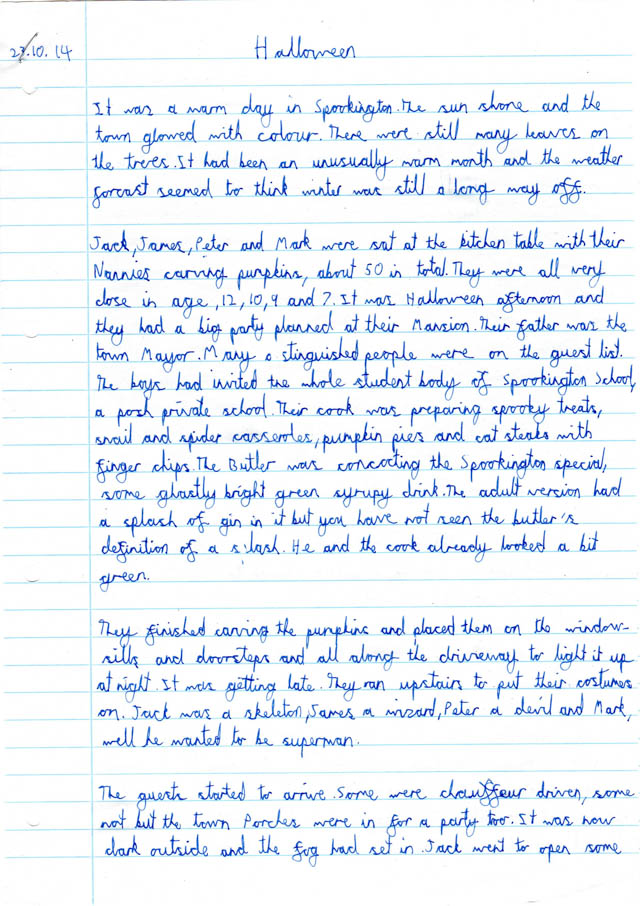 27.10.14 Halloween
It was a warm day in Spookington. The sun shone and the
town glowed with colour. There were still many leaves on
the trees. It had been an unusually warm month and the weather
forcast seemed to think winter was still a long way off.
Jack, James, Peter and Mark were sat at the kitchen table with their
Nannies carving pumpkins, about 50 in total. They were all very
close in age, 12, 10, 9 and 7. It was Halloween afternoon and
they had a big party planned at their Mansion. Their father was the
town Mayor. Many stinguished people were on the guest list.
The boys had invited the whole student body of Spookington School,
a posh private school. Their cook was preparing spooky treats,
snail and spider casseroles, pumpkin pies and cat steaks with
finger chips. The Butler was concocting the Spookington special,
some ghastly bright green syrupy drink. The adult version had
a splash of gin in it but you have not seen the butler's
definition of a slash. He and the cook already looked a bit
green.
They finished carving the pumpkins and placed them on the window-
sills and doorsteps and all along the driveway to light it up
at night. It was getting late. They ran upstairs to put their costumes
on. Jack was a skeleton, James a wizard, Peter a devil and Mark,
well he wanted to be superman.
The guests started to arrive. Some were chauffeur driven, some
not but the town Porches were in for a party too. It was now
dark outside and the fog had set in. Jack went to open some